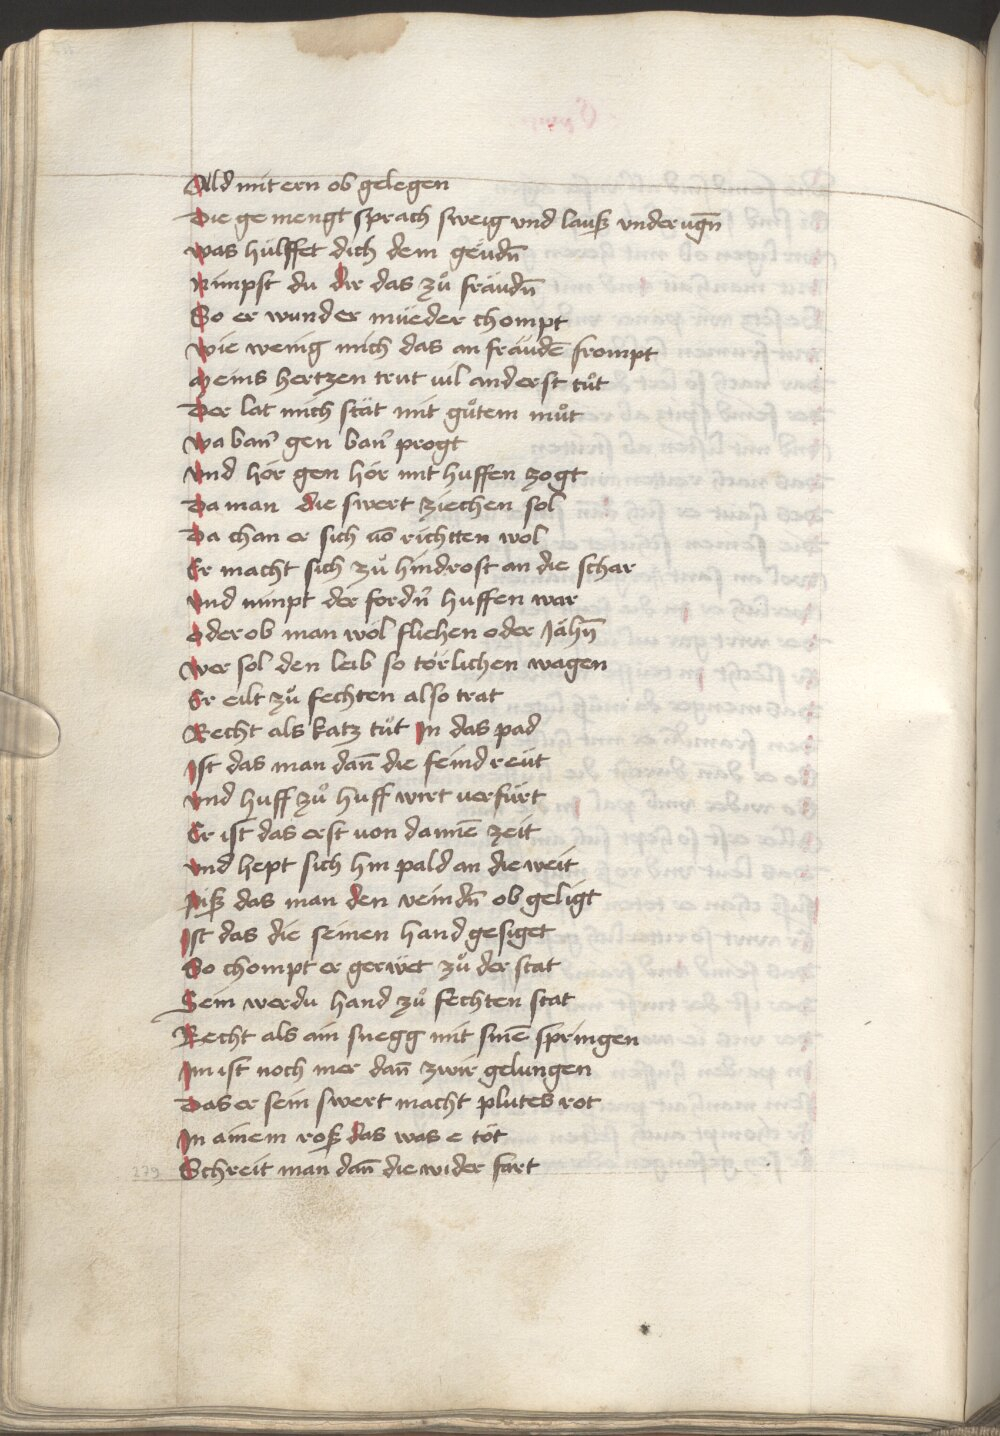 Ald mit ern ob gelegen
Die gemengt sprach sweig vnd lausz vnderugn̄
Was hülffet dich dem geüdn̄
Nimpst du dir das zuͦ fräudn̄
So er wunder müeder chompt
Wie wenig mich das an fräudē frompt
Meins hertzen trut uil anderst tuͦt
Der lat mich stät mit guͦtem muͦt
Wa ban̄ gen ban̄ progt
Vnd hör gen hör mit huffen zogt
Da man die swert ziechen sol
Da chan er sich uō richtten wol
Er macht sich zuͦ hindrost an die schar
Vnd nimpt der fordn̄ huffen war
Oder ob man wol fliehen oder Jähn̄
Wer sol den leib so törlichen wagen
Er eilt zuͦ fechten also trat
Recht als katz tuͦt In das pad
Ist das man dan̄ die feind reüt
Vnd huff zuͦ huff wirt verfürt
Er ist das erst von dannē zeit
Vnd hept sich hin pald an die weit
Pisz das man den veindn̄ ob geligt
Ist das die seinen hand gesiget
So chompt er gerüet zuͦ der stat
Sein werdu hand zuͦ fechten stat
Recht als ain snegg mit sinē springen
Im ist noch mer dan̄ zwir gelungen
Das er sein swert macht plutes rot
In ainem rosz das was e töt
Schreit man dan̄ die wider fart
279